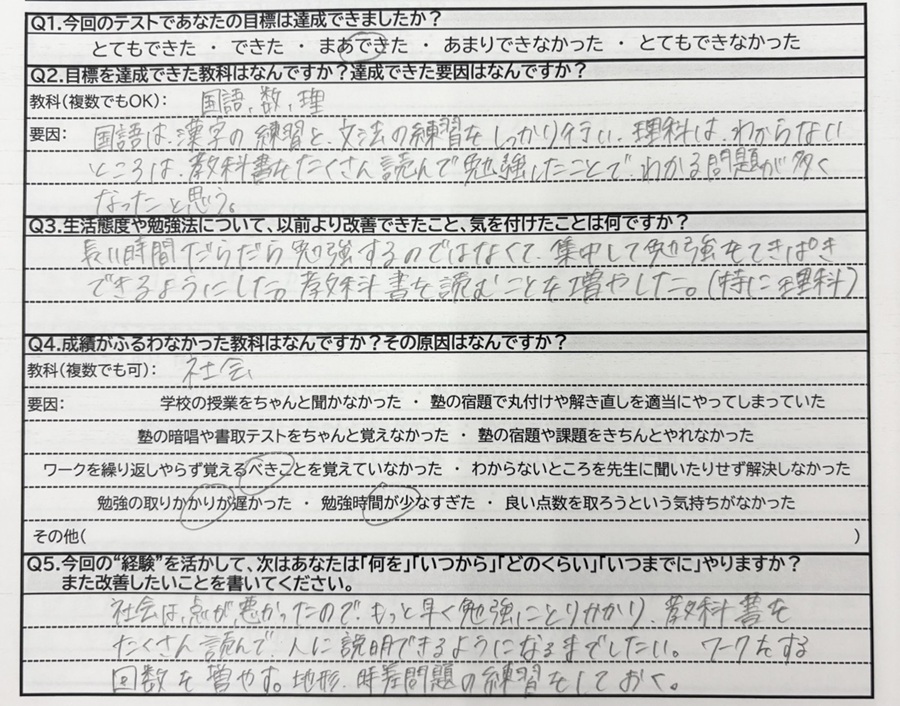 Q1.今回のテストであなたの目標は達成できましたか？
とてもできた ・ できた ・ まあできた ・ あまりできなかった ・ とてもできなかった
Q2.目標を達成できた教科はなんですか？達成できた要因はなんですか？
教科(複数でもOK)： 国語、数、理
要因： 国語は、漢字の練習と、文法の練習をしっかり行い、理科は、わからない
ところは、教科書をたくさん読んで勉強したことで、わかる問題が多く
なったと思う。
Q3.生活態度や勉強法について、以前より改善できたこと、気を付けたことは何ですか？
長い時間だらだら勉強するのではなくて、集中して勉強をてきぱき
できるようにした。教科書を読むことを増やした。(特に理科)
Q4.成績がふるわなかった教科はなんですか？その原因はなんですか？
教科(複数でも可)： 社会
要因： 学校の授業をちゃんと聞かなかった ・ 塾の宿題で丸付けや解き直しを適当にやってしまっていた
塾の暗唱や書取テストをちゃんと覚えなかった ・ 塾の宿題や課題をきちんとやれなかった
ワークを繰り返しやらず覚えるべきことを覚えていなかった ・ わからないところを先生に聞いたりせず解決しなかった
勉強の取りかかりが遅かった ・ 勉強時間が少なすぎた ・ 良い点数を取ろうという気持ちがなかった
その他( )
Q5.今回の“経験”を活かして、次はあなたは「何を」「いつから」「どのくらい」「いつまでに」やりますか？
また改善したいことを書いてください。
社会は、点が、悪かったので、もっと早く勉強にとりかかり、教科書を
たくさん読んで、人に説明できるようになるまでしたい。ワークをする
回数を増やす。地形、時差問題の練習をしておく。